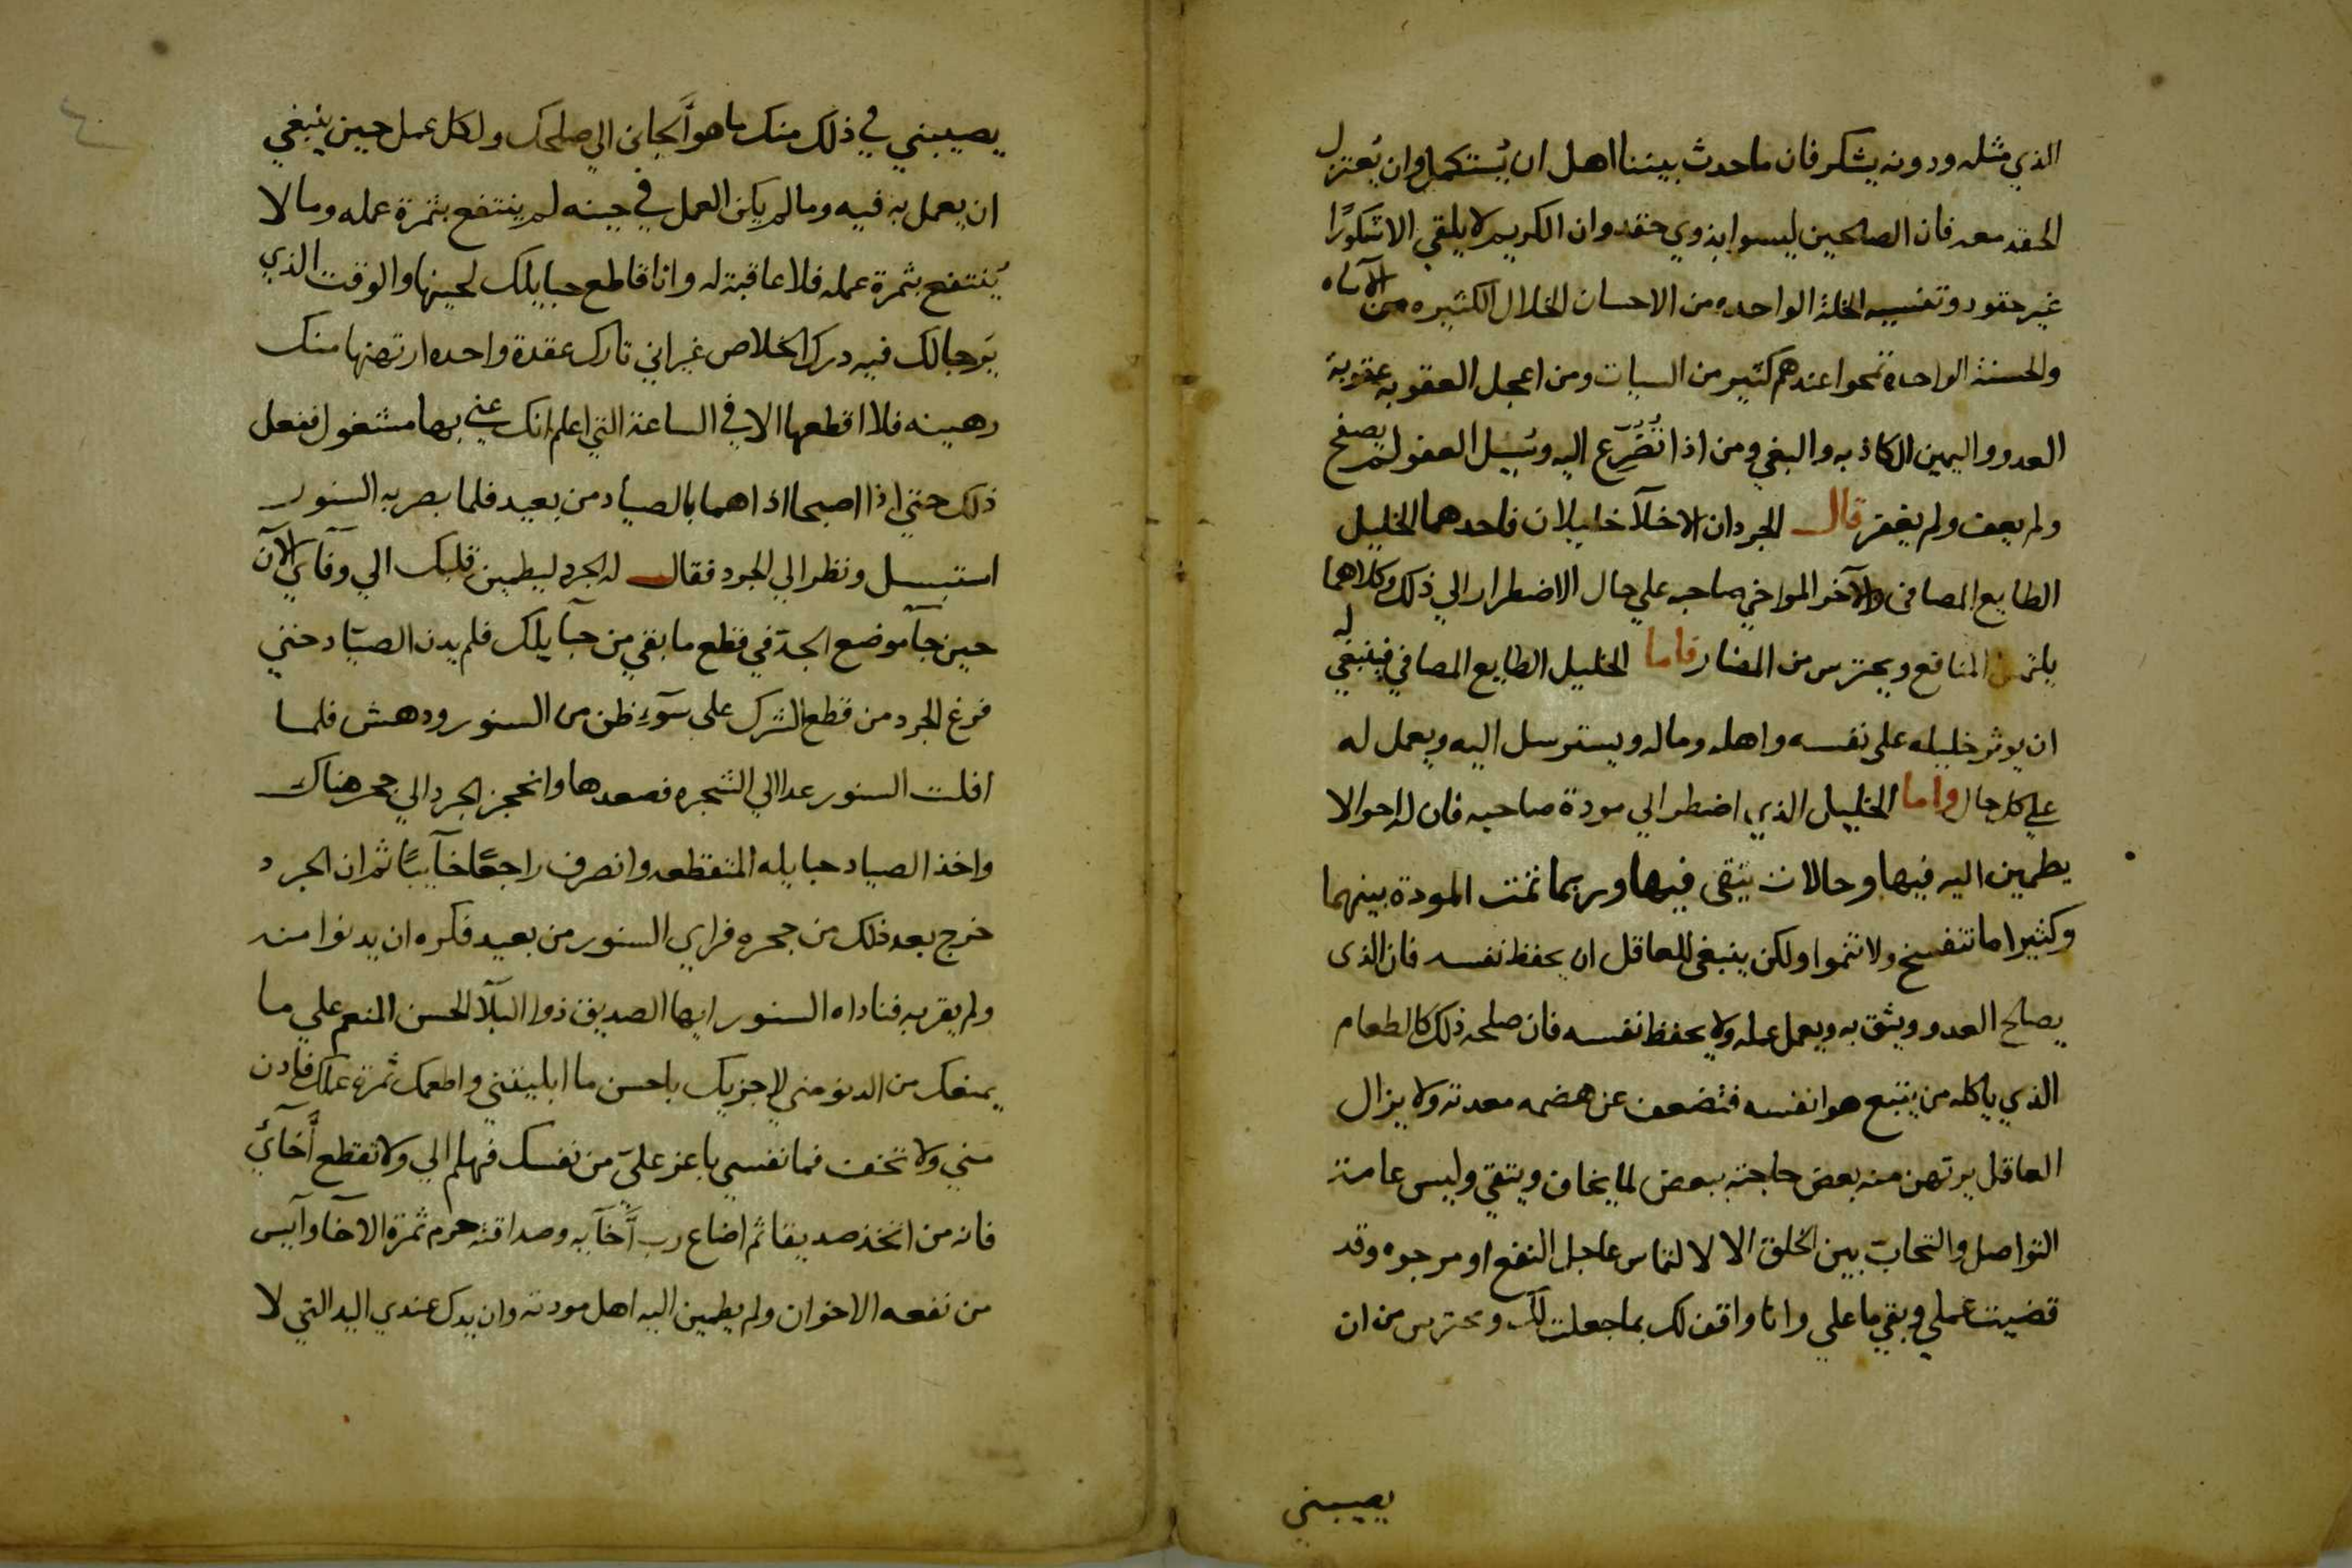 الذي مثله ودونه يشكر فان ما حدث بيننا اهل ان يُستكمل وان يُعتزل
الحقد معه فان الصالحين ليسوا بذوي حقد وان الكريم لا يلقي الا شكورًا
غير حقود وتنسيه الخلة الواحده من الاحسان الخلال الكثيره من الاساه
والحسنة الواحدة تمحوا عندهم كثير من السيات ومن اعجل العقوبه عقوبة
العدو واليمين الكاذبه والبغي ومن اذا تُضُرِّع اليه وسُيل العفو لم يصفح
ولم يعف ولم يغفر قال الجردان الاخلآ خليلان فاحدهما الخليل
الطايع المصافي والآخر المواخي صاحبه علي حال الاضطرار الي ذلك وكلاهما
يلتمس المنافع ويحترس من المضار فاما الخليل الطايع المصافي فينبغي له
ان يوثر خليله على نفسه واهله وماله ويسترسل اليه ويعمل له
علي كل حال واما الخليل الذي اضطر الي مودة صاحبه فان له احوالا
يطمين اليه فيها وحالات يتقى فيها وربما تمت المودة بينهما
وكثيرا ما تنفسخ ولا تتموا ولكن ينبغي للعاقل ان يحفظ نفسه فان الذى
يصالح العدو ويثق به ويعمل عمله ولا يحفظ نفسه فان صلحه ذلك كالطعام
الذي ياكله من يتبع هوا نفسه فتضعف عن هضمه معدته ولا يزال
العاقل يرتهن منه بعض حاجته ببعض لما يخاف ويتقي وليس عامة
التواصل والتحابّ بين الخلق الا لالتماس عاجل النفع او مرجوه وقد
قضيت عملي وبقي ما علي وانا واقف لك بما جعلت لك ومحترس من ان
يصيبني
يصيبني في ذلك منك ما هو أَلجاني الي صلحك ولكل عمل حين ينبغي
ان يعمل به فيه وما لم يكن العمل في حينه لم ينتفع بثمرة عمله وما لا
يُنتفع بثمرة عمله فلا عاقبة له وانا قاطع حبايلك لحينها والوقت الذي
يَرجا لك فيه درك الخلاص غير اني تارك عقدة واحده ارتهنها منك
رهينه فلا اقطعها الا في الساعة التي اعلم انك عني بها مشغول ففعل
ذلك حتي اذا اصبحا اذا هما بالصياد من بعيد فلما بصر به السنور
استبسل ونظر الي الجرد فقال له الجرد ليطمين قلبك الي وفآي الآن
حين جآ موضع الجدّ في قطع ما بقي من حبآيلك فلم يدن الصيّاد حتي
فرغ الجرد من قطع الشرك على سَوءِ ظن من السنور ودهش فلما
افلت السنور عدا الي الشجره فصعدها وانحجز الجرد الي جحر هناك
واخذ الصياد حبايله المتقطعه وانصرف راجعًا خآيبًا ثم ان الجرد
خرج بعد ذلك من جحره فراي السنور من بعيد فكره ان يدنوا منه
ولم يقربه فناداه السنور ايها الصديق ذوا البلآ الحسن المنعم علي ما
يمنعك من الدنو مني لاجزيك باحسن ما ابليتني واطعمك ثمرة عملك فادن
مني ولا تخف فما نفسي باعز عليّ من نفسك فهلم الي ولا تقطع أخآئي
فانه من اتخذ صديقا ثم اضاع رب أخآيه وصداقته حرم ثمرة الاخآ وآيس
من نفعه الاخوان ولم يطمين اليه اهل مودته وان يدك عندي اليد التي لا